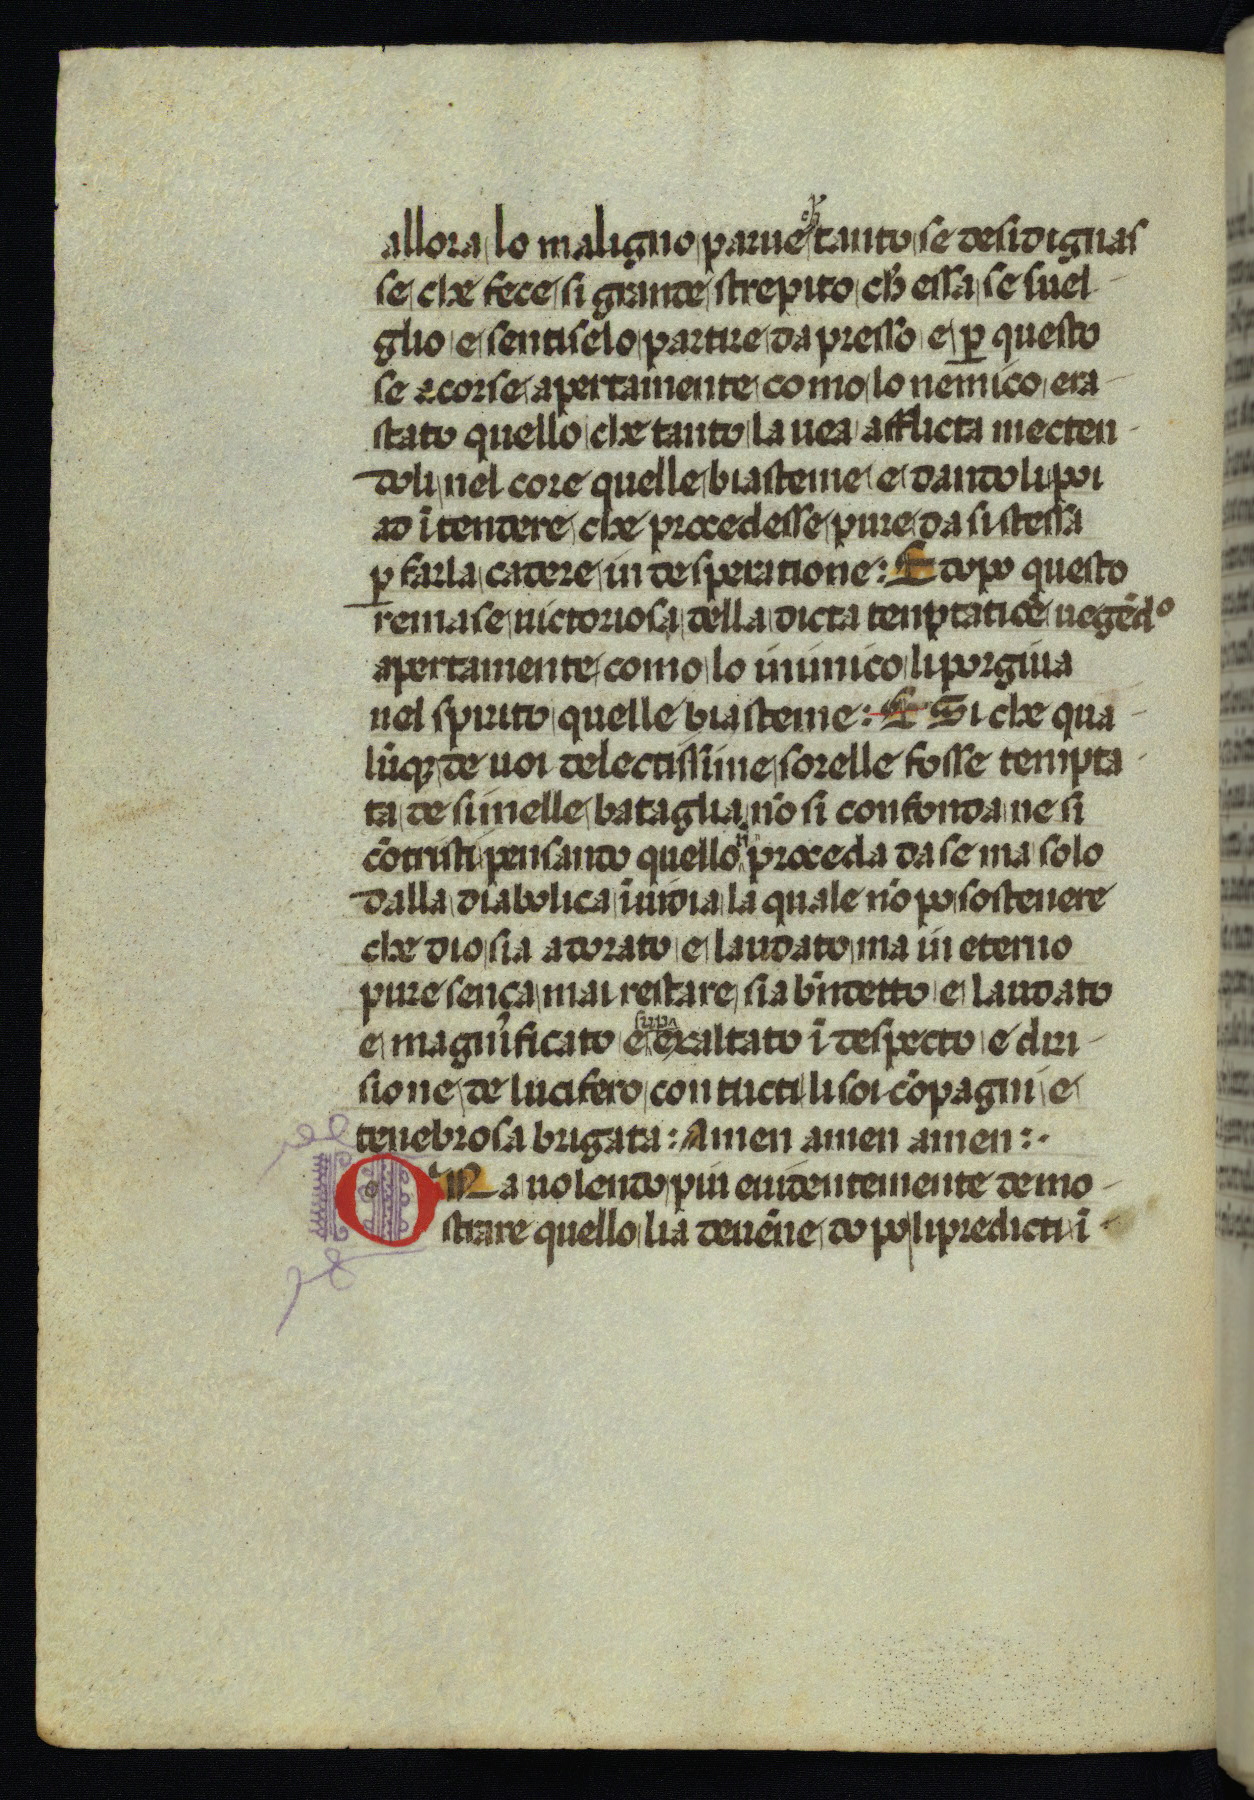 allora lo maligno parue ch̄ tanto se desidignas
se che fece si grande strepito ch̄ essa se suel
glio e sentiselo partire da presso e ꝑ questo
se acorse apertamente como lo nemico era
stato quello che tanto la uea afflicta mecten
doli nel core quelle biasteme e dandoli poi
ad ītendere che procedesse pure da si stessa
ꝑ farla cadere in desperatione: E dopo questo
remase uictoriosa della dicta temptatiōe uegēdo
apertamente como lo inimico li porgiua
nel spirito quelle biasteme: E Si che qua
lūqꝫ de uoi delectissime sorelle fosse tempta
ta de simelle bataglia nō si confonda ne si
cōtristi pensando quello nō proceda da se ma solo
dalla diabolica īuidia la quale nō po sostenere
che dio sia adorato e laudato ma in eterno
pure sença mai restare sia b̄ndetto e laudato
e magnificato e supexaltato ī despecto e diri
sione de lucifero con tucti li soi cōpagni e
tenebrosa brigata: Amen amen amen:.
ORa uolendo piu euidentemente demo
strare quello lia deuēne dopo li predicti ī